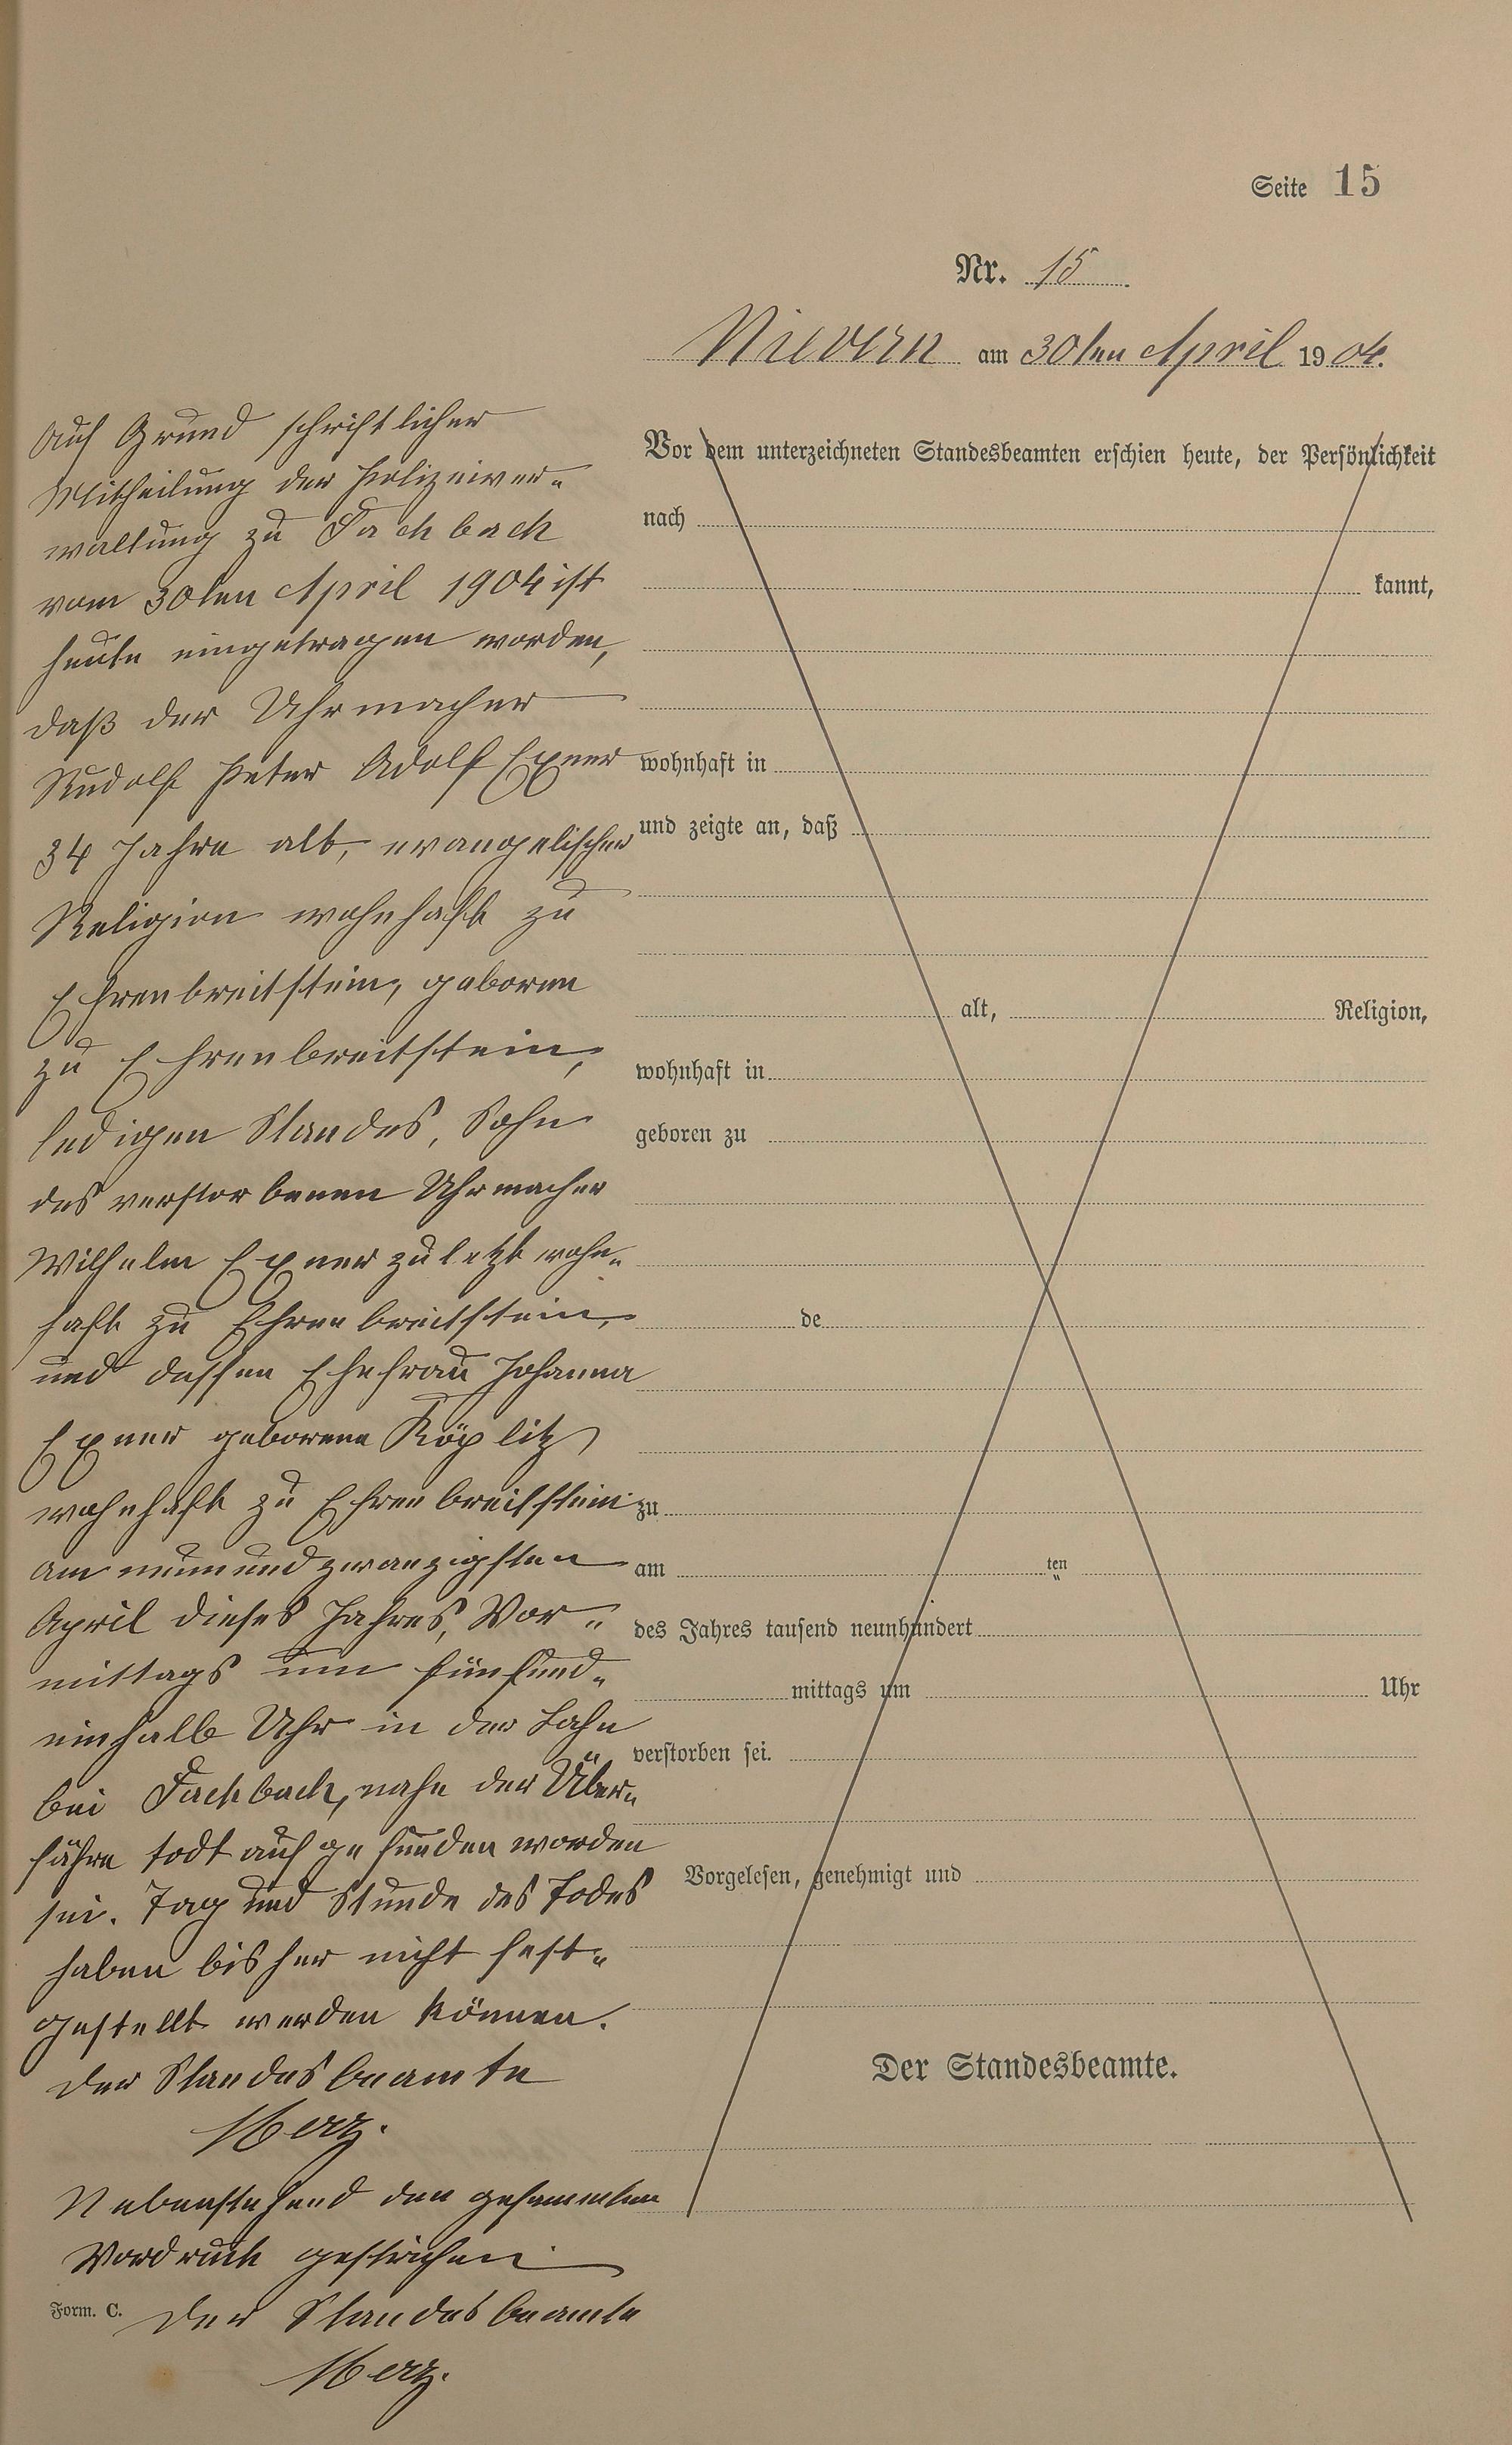 Seite 15
Nr. 15
Nievern am 30ten April 1904.
Auf Grund schriftlicher
Mittheilung der Polizeiver-
waltung zu Fachbach
vom 30ten April 1904 ist
heute eingetragen worden,
daß der Uhrmacher
Rudolf Peter Adolf Exner
34 Jahre alt, evangelischer
Religion wohnhaft zu
Ehrenbreitstein, geboren
zu Ehrenbreitstein,
ledigen Standes, Sohn
des verstorbenen Uhrmacher
Wilhelm Exner zuletzt wohn-
haft zu Ehrenbreitstein,
und dessen Ehefrau Johanna
Exner geborene Röplitz
wohnhaft zu Ehrenbreitstein
am neunundzwanzigsten
April dieses Jahres, Vor-
mittags um fünfund-
einhalb Uhr in der Lahn
bei Fachbach, nahe der Über-
fähre todt aufgefunden worden
sei. Tag und Stunde des Todes
haben bisher nicht fest-
gestellt werden können.
Der Standesbeamte
Merz.
Nebenstehend den gesammten
Vordruck gestrichen
Der Standesbeamte
Merz.
Form. C.
Vor dem unterzeichneten Standesbeamten erschien heute, der Persönlichkeit
nach
kannt,
wohnhaft in
und zeigte an, daß
alt, Religion,
wohnhaft in
geboren zu
de
zu
am ten
des Jahres tausend neunhundert
mittags um Uhr
verstorben sei.
Vorgelesen, genehmigt und
Der Standesbeamte.